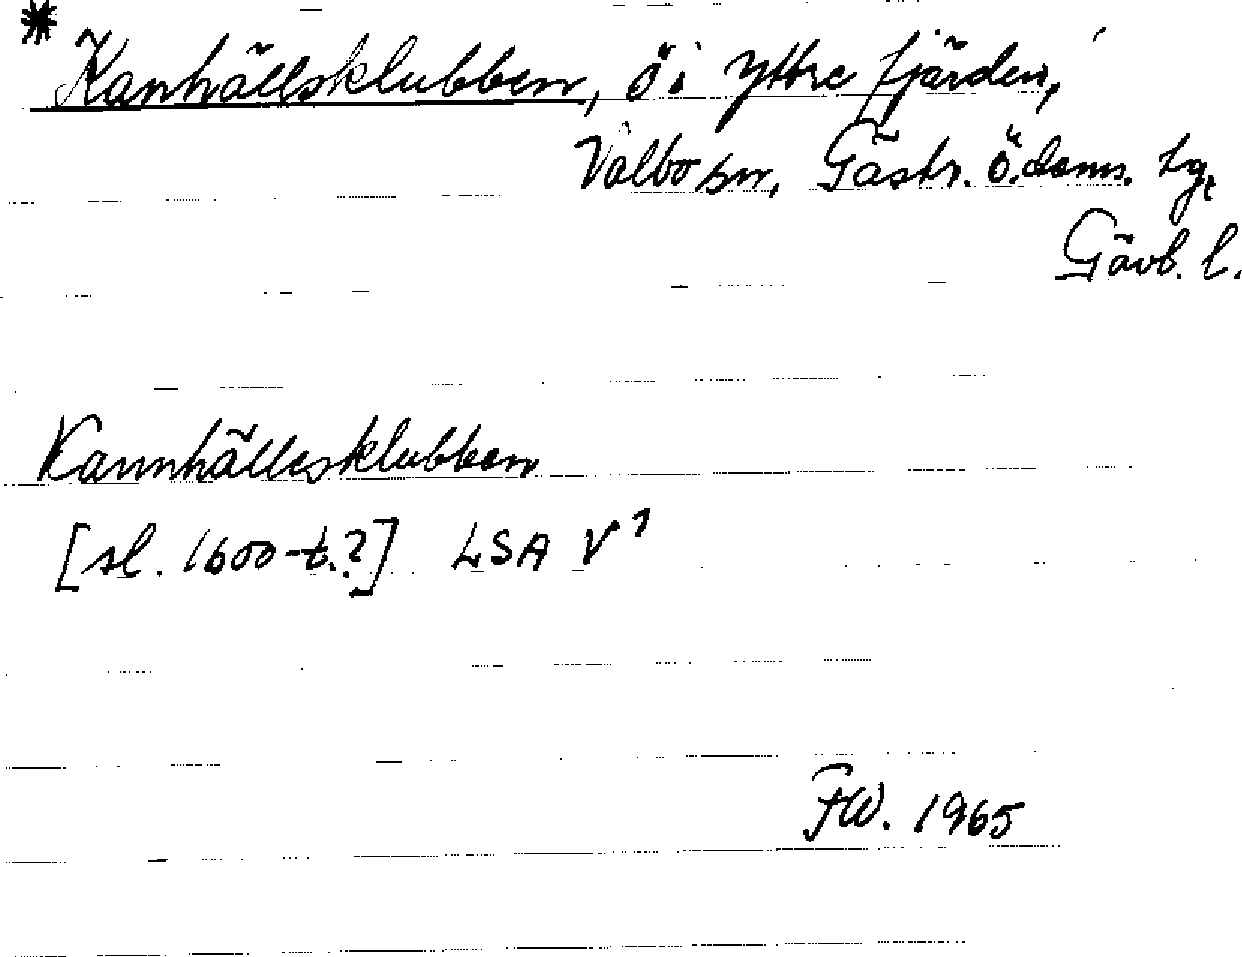 * Kanhällsklubben, ö i Yttre fjärden,
Valbo sn, Gästr. ö. doms. tg,
Gävb. l.
Kannhällesklubben
[sl. 1600-t.?] LSA V¹
FW. 1965